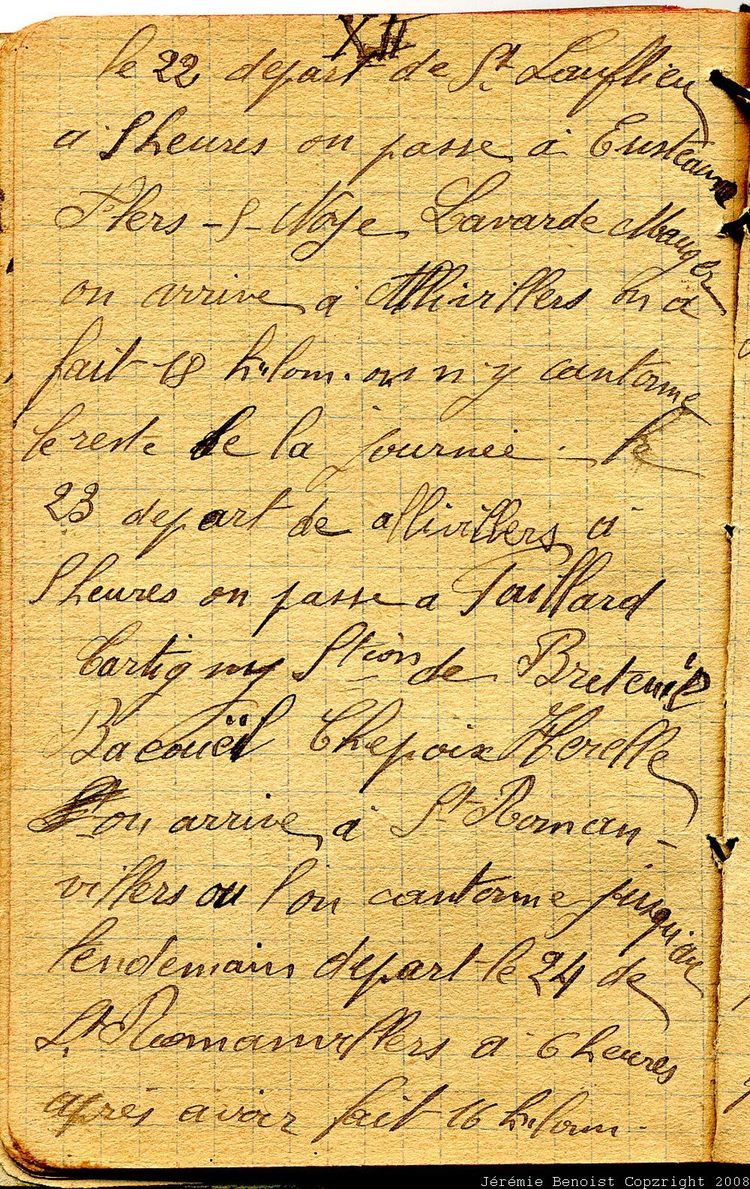 XII
le 22 depart de St Lauflieu
a 5 heures on passe à Essertaux
Flers - S - Noye Lavarde Mauger
on arrive à allivillers on a
fait 18 kilom. on n'y cantonne
le reste de la journée. le
23 depart de allivillers à
5 heures on passe a Paillard
Cartigny Stion de Breteuil
Bacouël Chepoix Herelle
on arrive à St Roman-
villers ou l'on cantonne jusqu'au
lendemain depart le 24 de
St Romanvillers à 6 heures
après avoir fait 16 kilom.
Jérémie Benoist Copzright 2008